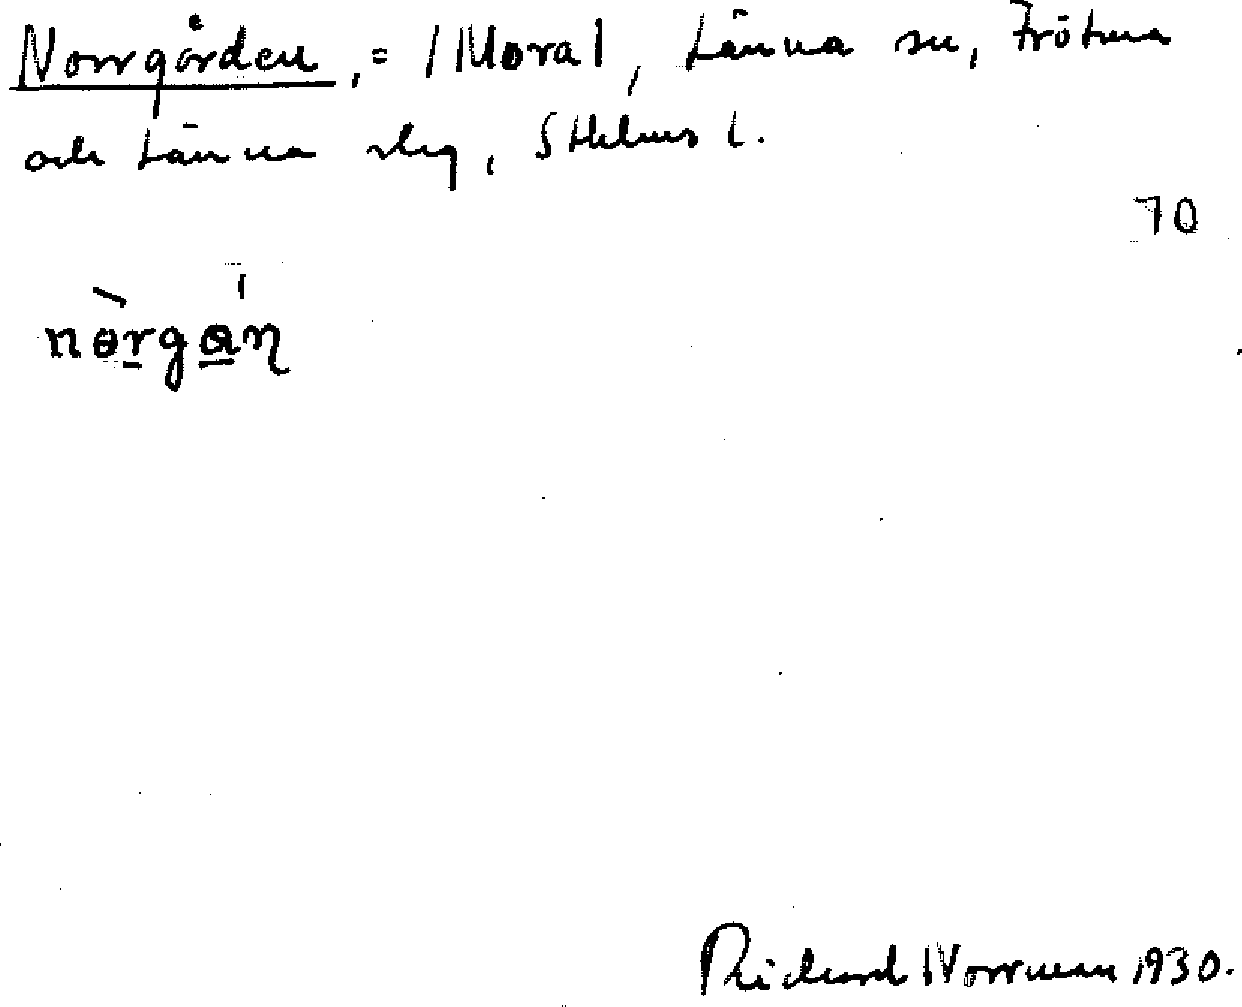 Norrgården, = /Mora/, Länna sn, Frötuna
och Länna slg, Sthlms l.
70
nòrgán
Richard Norrman 1930.